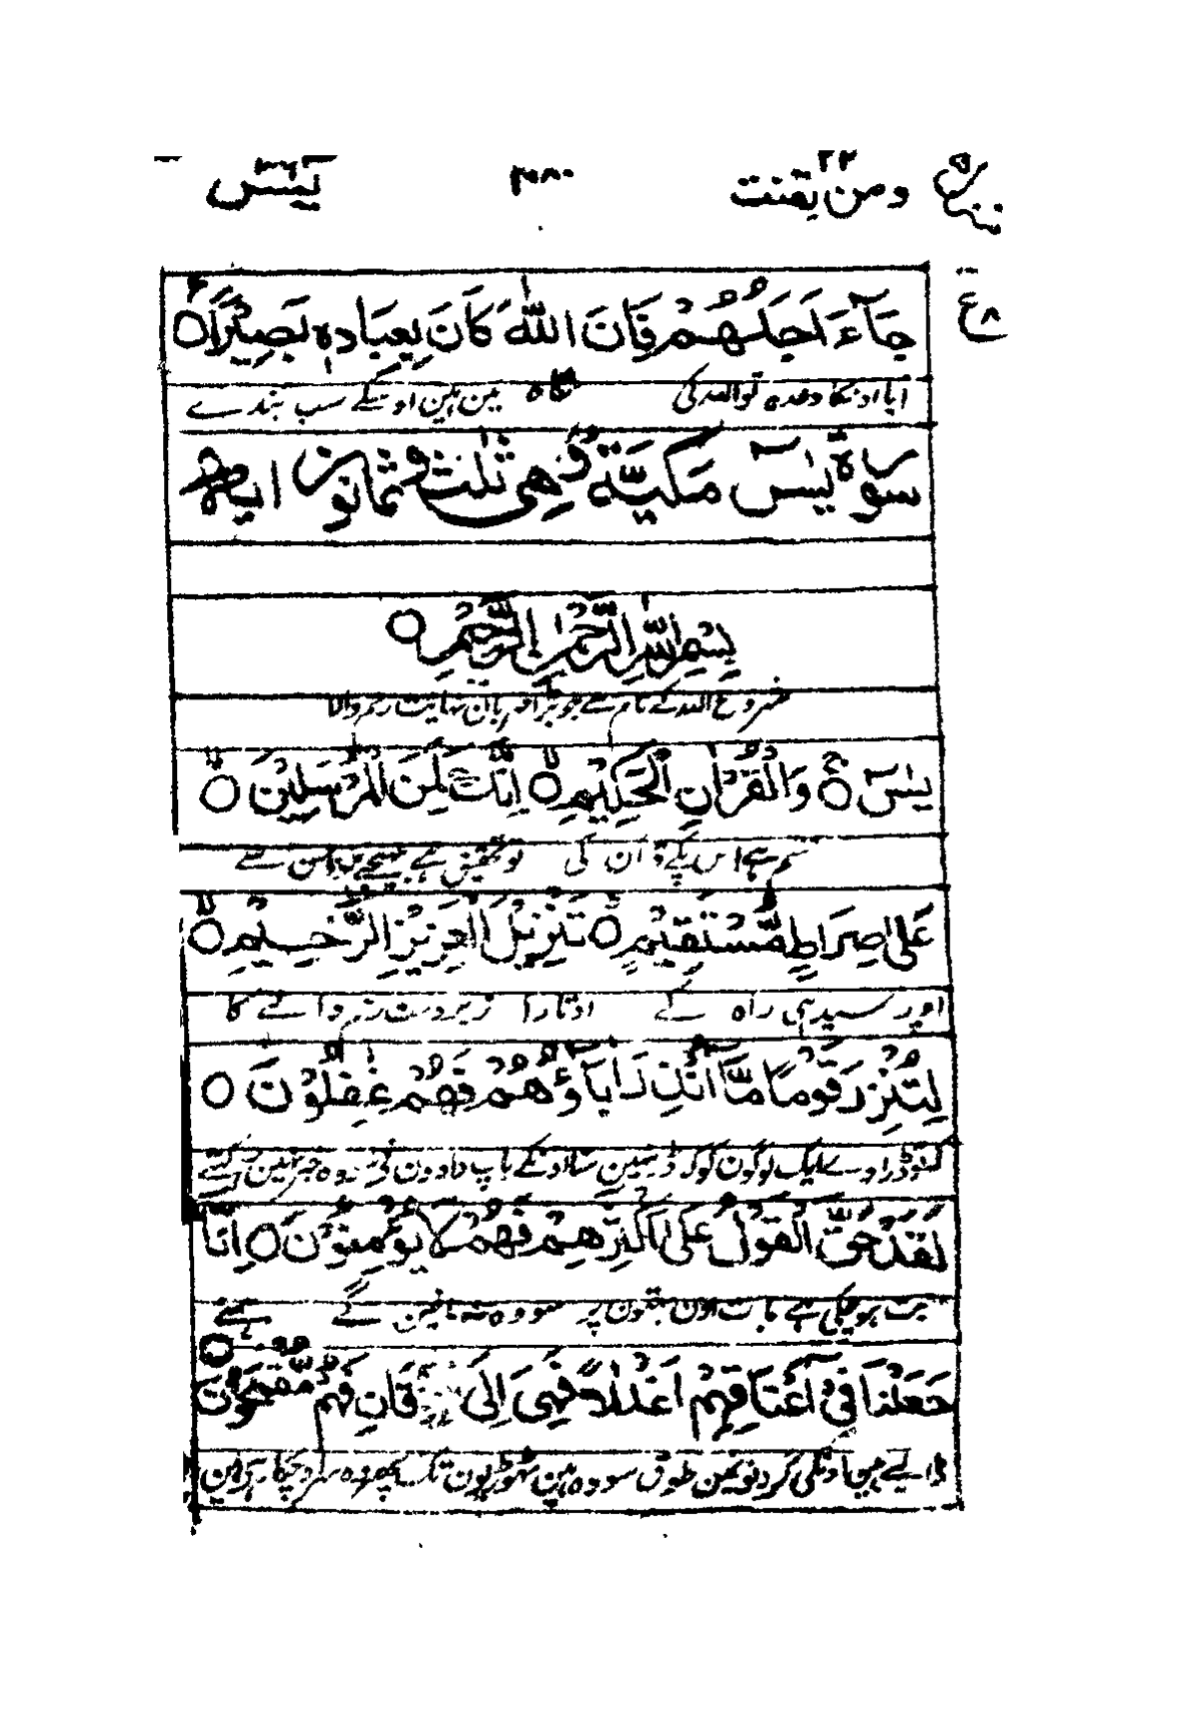 ومن يقنت ٢٢
يٰسٓ ٣٦
ع ٨
جَآءَ اَجَلُهُمْ فَاِنَّ اللّٰهَ كَانَ بِعِبَادِهٖ بَصِيْرًا
آیا اونکا وعدہ تو اللہ کی نگاہ مین ہین اوسکے سب بندے
سورة يٰسٓ مَكِّيَّةٌ وَّهِىَ ثَلٰثٌ وَّثَمَانُوْنَ اٰيَةً
بِسْمِ اللّٰهِ الرَّحْمٰنِ الرَّحِيْمِ
شروع اللہ کے نام سے جو بڑا مہربان نہایت رحم والا
يٰسٓ وَالْقُرْاٰنِ الْحَكِيْمِ اِنَّكَ لَمِنَ الْمُرْسَلِيْنَ
قسم ہے اس پکے قرآن کی تو تحقیق ہے بھیجے ہوؤن سے
عَلٰى صِرَاطٍ مُّسْتَقِيْمٍ تَنْزِيْلَ الْعَزِيْزِ الرَّحِيْمِ
اوپر سیدہی راہ کے اوتارا زبردست رحم والے کا
لِتُنْذِرَ قَوْمًا مَّآ اُنْذِرَ اٰبَآؤُهُمْ فَهُمْ غٰفِلُوْنَ
کہ تو ڈراوے ایک لوگون کو کہ ڈر نہین سنا اونکے باپ دادون نے سو وہ خبر نہین رکھتے
لَقَدْ حَقَّ الْقَوْلُ عَلٰٓى اَكْثَرِهِمْ فَهُمْ لَا يُؤْمِنُوْنَ اِنَّا
ثابت ہو چکی ہے بات اون بہتون پر سو وہ نہ مانین گے ہمنے
جَعَلْنَا فِىْٓ اَعْنَاقِهِمْ اَغْلٰلًا فَهِىَ اِلَى الْاَذْقَانِ فَهُمْ مُّقْمَحُوْنَ
ڈالے ہین اونکی گردنونمین طوق سو وہ ہین ٹھوڑیون تک پھر وہ سر اوچکا رہے ہین